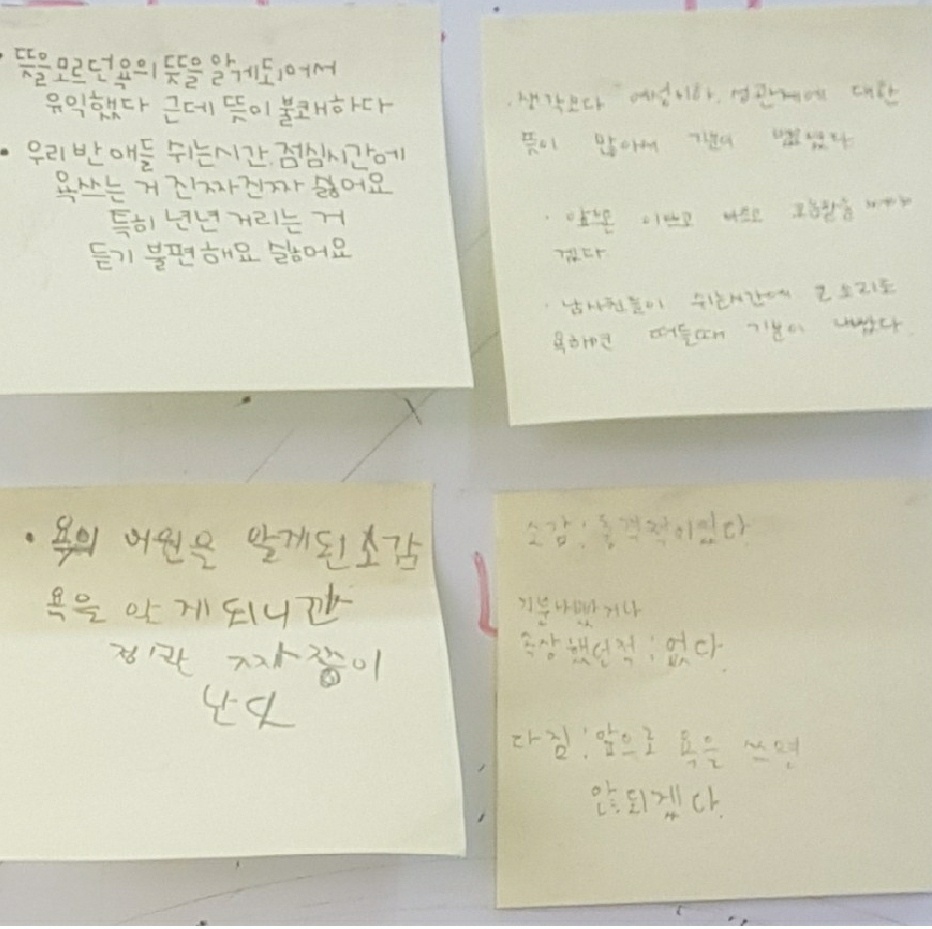 • 뜻을모르던욕의 뜻을 알게되어서
유익했다 근데 뜻이 불쾌하다
• 우리반 애들 쉬는시간, 점심시간에
욕쓰는 거 진짜진짜 싫어요
특히 년년 거리는 거
듣기 불편해요 싫어요
· 생각보다 성관계에 대한
뜻이 많아서 기분이
· 이쁘고 바르고
겠다
· 남사친들이 쉬는시간에 큰 소리로
욕하면 떠들때 기분이 나빴다.
• 욕의 어원을 알게된소감
욕을 알게되니까
짜증이
난다
소감: 충격적이었다.
기분나빴거나
속상했던적: 없다.
다짐: 앞으로 욕을 쓰면
안되겠다.